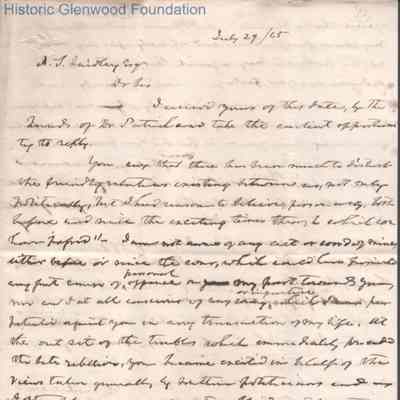 Historic Glenwood Foundation
July 29/65
A. S. Lindley Esq
Dr Sir
I received yours of this date, by the
hands of Dr Patrick and take the earliest opportuni
ty to reply.
You say that there has been much to disturb
the friendly relations existing between us, not only
politically, but I had reason to believe, personally, both
before and since the exciting times thro, which we
have passed". I am not aware of any act or word of mine,
either before or since the war, which could have furnished
any just cause of personal offence on my part towards you,
nor am I at all conscious of any
against you in any transaction of my life. At
the out set of the troubles which immediately preceded
the late rebellion, you became excited in behalf of the
views taken generally by Southern politicians and